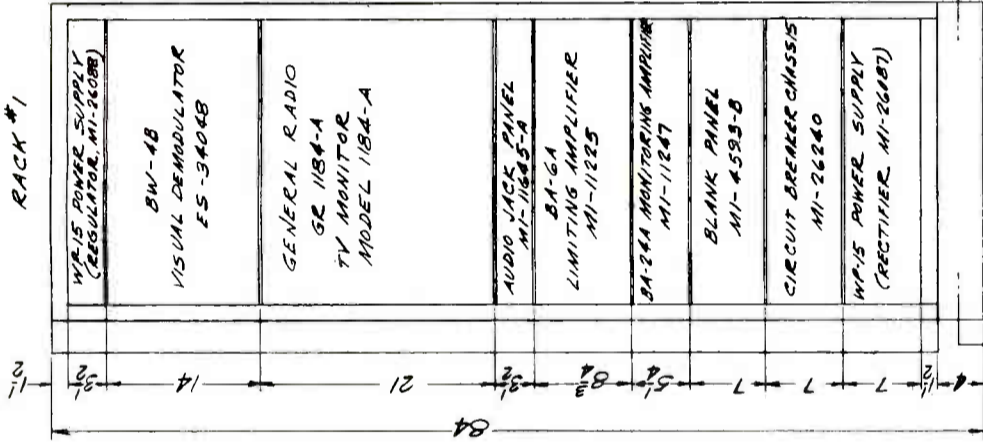 RACK #1
WP-15 POWER SUPPLY
(REGULATOR MI-26088)
BW-4B
VISUAL DEMODULATOR
ES-34048
GENERAL RADIO
GR 1184-A
TV MONITOR
MODEL 1184-A
AUDIO JACK PANEL
MI-11645-A
BA-6A
LIMITING AMPLIFIER
MI-11225
BA-24A MONITORING AMPLIFIER
MI-11247
BLANK PANEL
MI-4593-B
CIRCUIT BREAKER CHASSIS
MI-26240
WP-15 POWER SUPPLY
(RECTIFIER MI-26087)
1 1/2
3 1/2
14
21
3 1/2
8 3/4
5 1/4
7
7
7
1 1/2
4
84